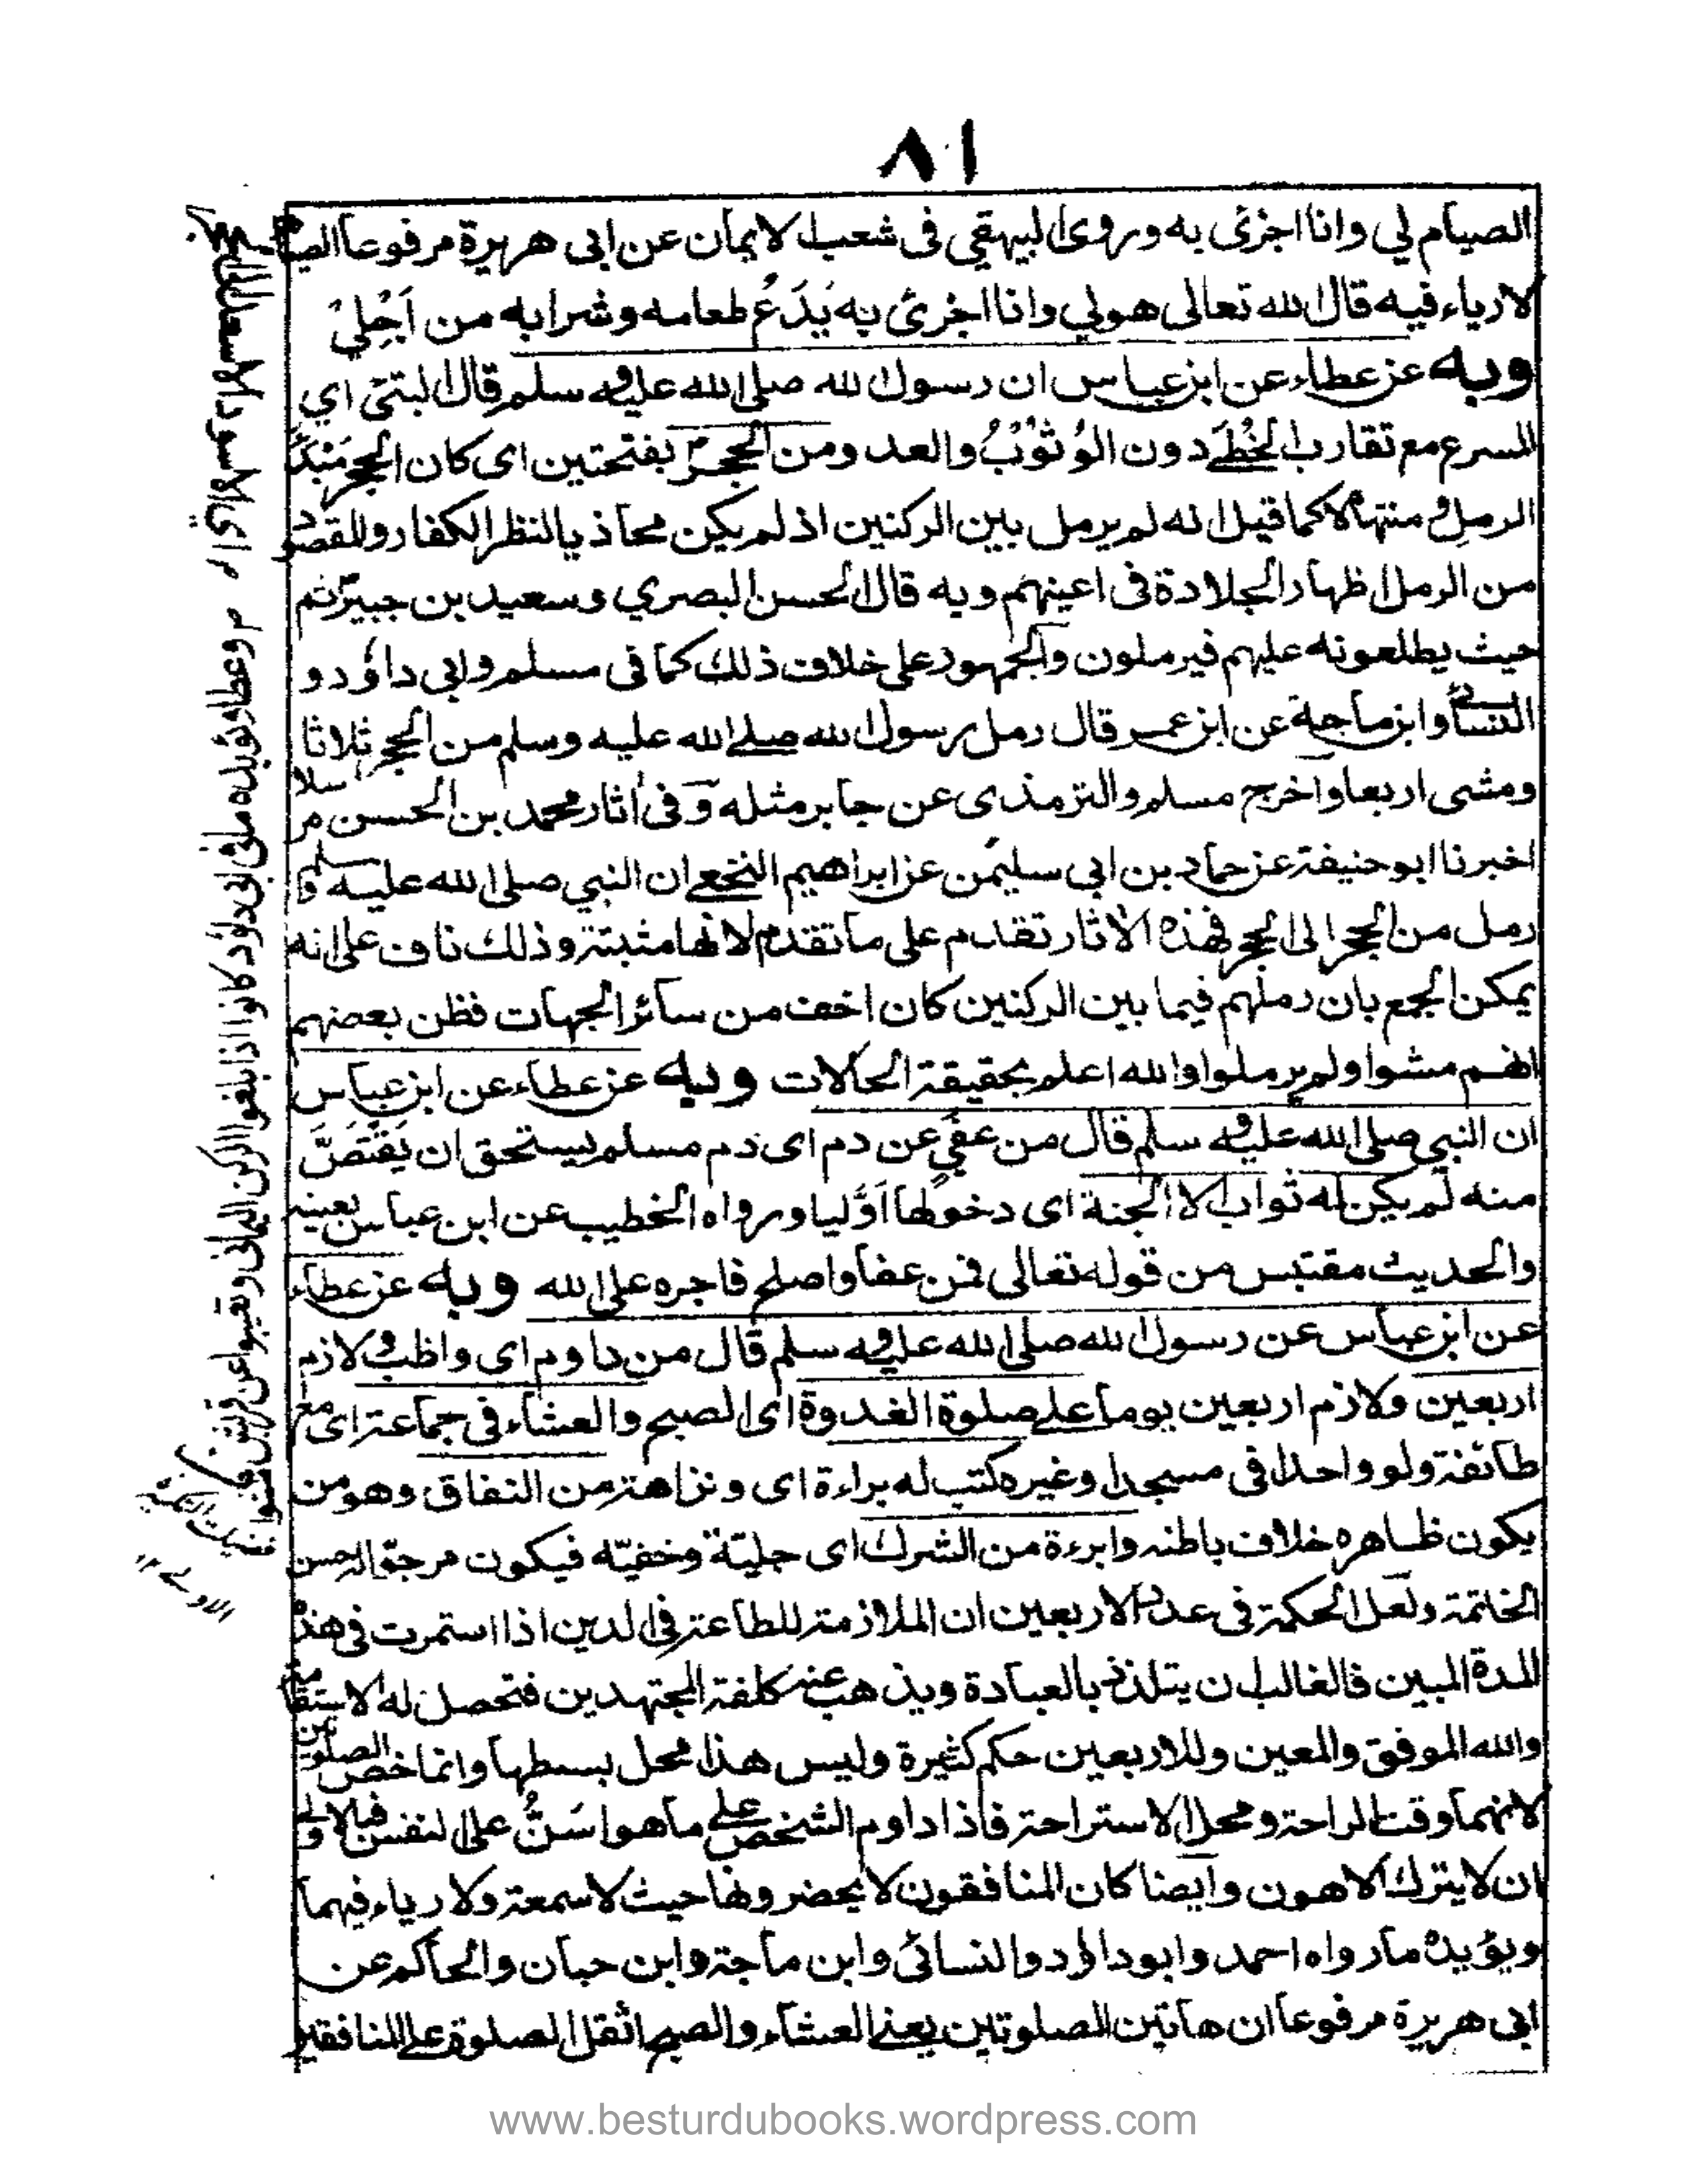 ٨١
الصيام لي وانا اجزئ به وروى البيهقي فى شعب الايمان عن ابى هريرة مرفوعا الصيام
لا رياء فيه قال الله تعالى هو لي وانا اجزئ به يَدَعُ طعامه وشرابه من اَجْلِيْ
وبه عن عطاء عن ابن عباس ان رسول الله صلى الله عليه و سلم قال البتئ اي
المسرع مع تقارب الخُطٰے دون الوُثوْبُ والعد ومن الحجر بفتحتين اى كان الحجر مَبْدَ
الرمل و منتهاه لا كما قيل انه لم يرمل بين الركنين اذ لم يكن محاذ يا لنظر الكفار والمقصود
من الرمل اظهار الجلادة فى اعينهم وبه قال الحسن البصري وسعيد بن جبير ثم
حيث يطلعونه عليهم فيرملون والجمهور على خلاف ذلك كما فى مسلم وابى داؤد و
النسائے وابن ماجة عن ابن عمر قال رمل رسول الله صلے الله عليه وسلم من الحجر ثلاثا
ومشى اربعا واخرج مسلم والترمذى عن جابر مثله وفى اٰثار محمد بن الحسن مرسلا
اخبرنا ابو حنيفة عن حماد بن ابى سليمٰن عن ابراهيم النخعے ان النبي صلى الله عليه و سلم
رمل من الحجر الى الحجر فهذه الاثار تقدم على ما تقدم لانها مثبتة وذلك ناف على انه
يمكن الجمع بان رملهم فيما بين الركنين كان اخف من سائر الجهات فظن بعضهم
انهم مشوا ولم يرملوا والله اعلم بحقيقة الحالات وبه عن عطاء عن ابن عباس
ان النبي صلى الله عليه و سلم قال من عفي عن دم اى دم مسلم يستحق ان يَقْتَصَّ
منه لم يكن له ثواب الا الجنة اى دخولها اوّليا ورواه الخطيب عن ابن عباس بعينه
والحديث مقتبس من قوله تعالى فمن عفا واصلح فاجره على الله وبه عن عطاء
عن ابن عباس عن رسول الله صلى الله عليه و سلم قال من داوم اى واظب و لازم
اربعين ولازم اربعين يوما علے صلوة الغدوة اى الصبح والعشاء فى جماعة اى مع
طائفة ولو واحدا فى مسجد او غيره كتب له براءة اى ونزاهة من النفاق وهو من
يكون ظاهره خلاف باطنه وابرءة من الشرك اى جليّة وخفيّه فيكون مرجوّا لحسن
الخاتمة ولعل الحكمة فى عدد الاربعين ان الملازمة للطاعة فى الدين اذا استمرت فى هذه
المدة المبين فالغالب ن يتلذذ بالعبادة ويذهب عنه كلفة المجتهدين فتحصل له الاستقامة
والله الموفق والمعين وللاربعين حكم كثيرة وليس هذا محل بسطها وانما خص الصلوتين
لانهما وقت الراحة ومحل الاستراحة فاذا داوم الشخص علے ما هو اسَنُّ على النفس فبالاولى
ان لا يترك الاهون وايضا كان المنافقون لا يحضرونها حيث لا سمعة ولا رياء فيهما
ويؤيده ما رواه احمد وابو داؤد والنسائى وابن ماجة وابن حبان والحاكم عن
ابى هريرة مرفوعا ان هاتين الصلوتين يعنے العشاء والصبح اثقل الصلوة علے المنافقين
وعطا ويؤيده ما فى ابى داؤد كانوا اذا بلغوا الركن اليمانى وتغيبوا عن قريش مشوا
www.besturdubooks.wordpress.com